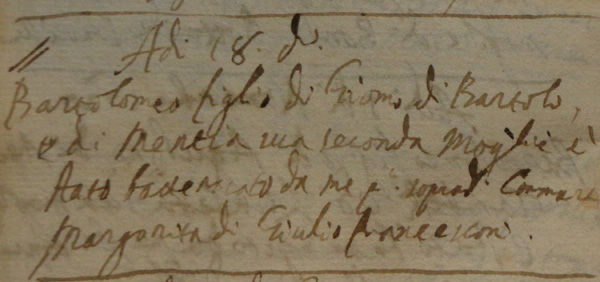 Adi 18. do.
Bartolomeo figlio di Giomo di Bartolo,
e di Mentia sua seconda Moglie è
stato battezzato da me pto. soprado. Commare
Margarita di Giulio Francesconi.